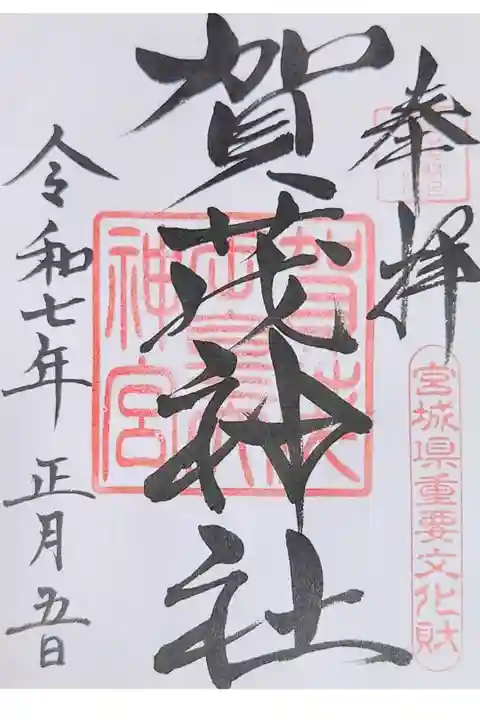 奉拝
宮城県重要文化財
賀茂神社
神宮
令和七年正月五日